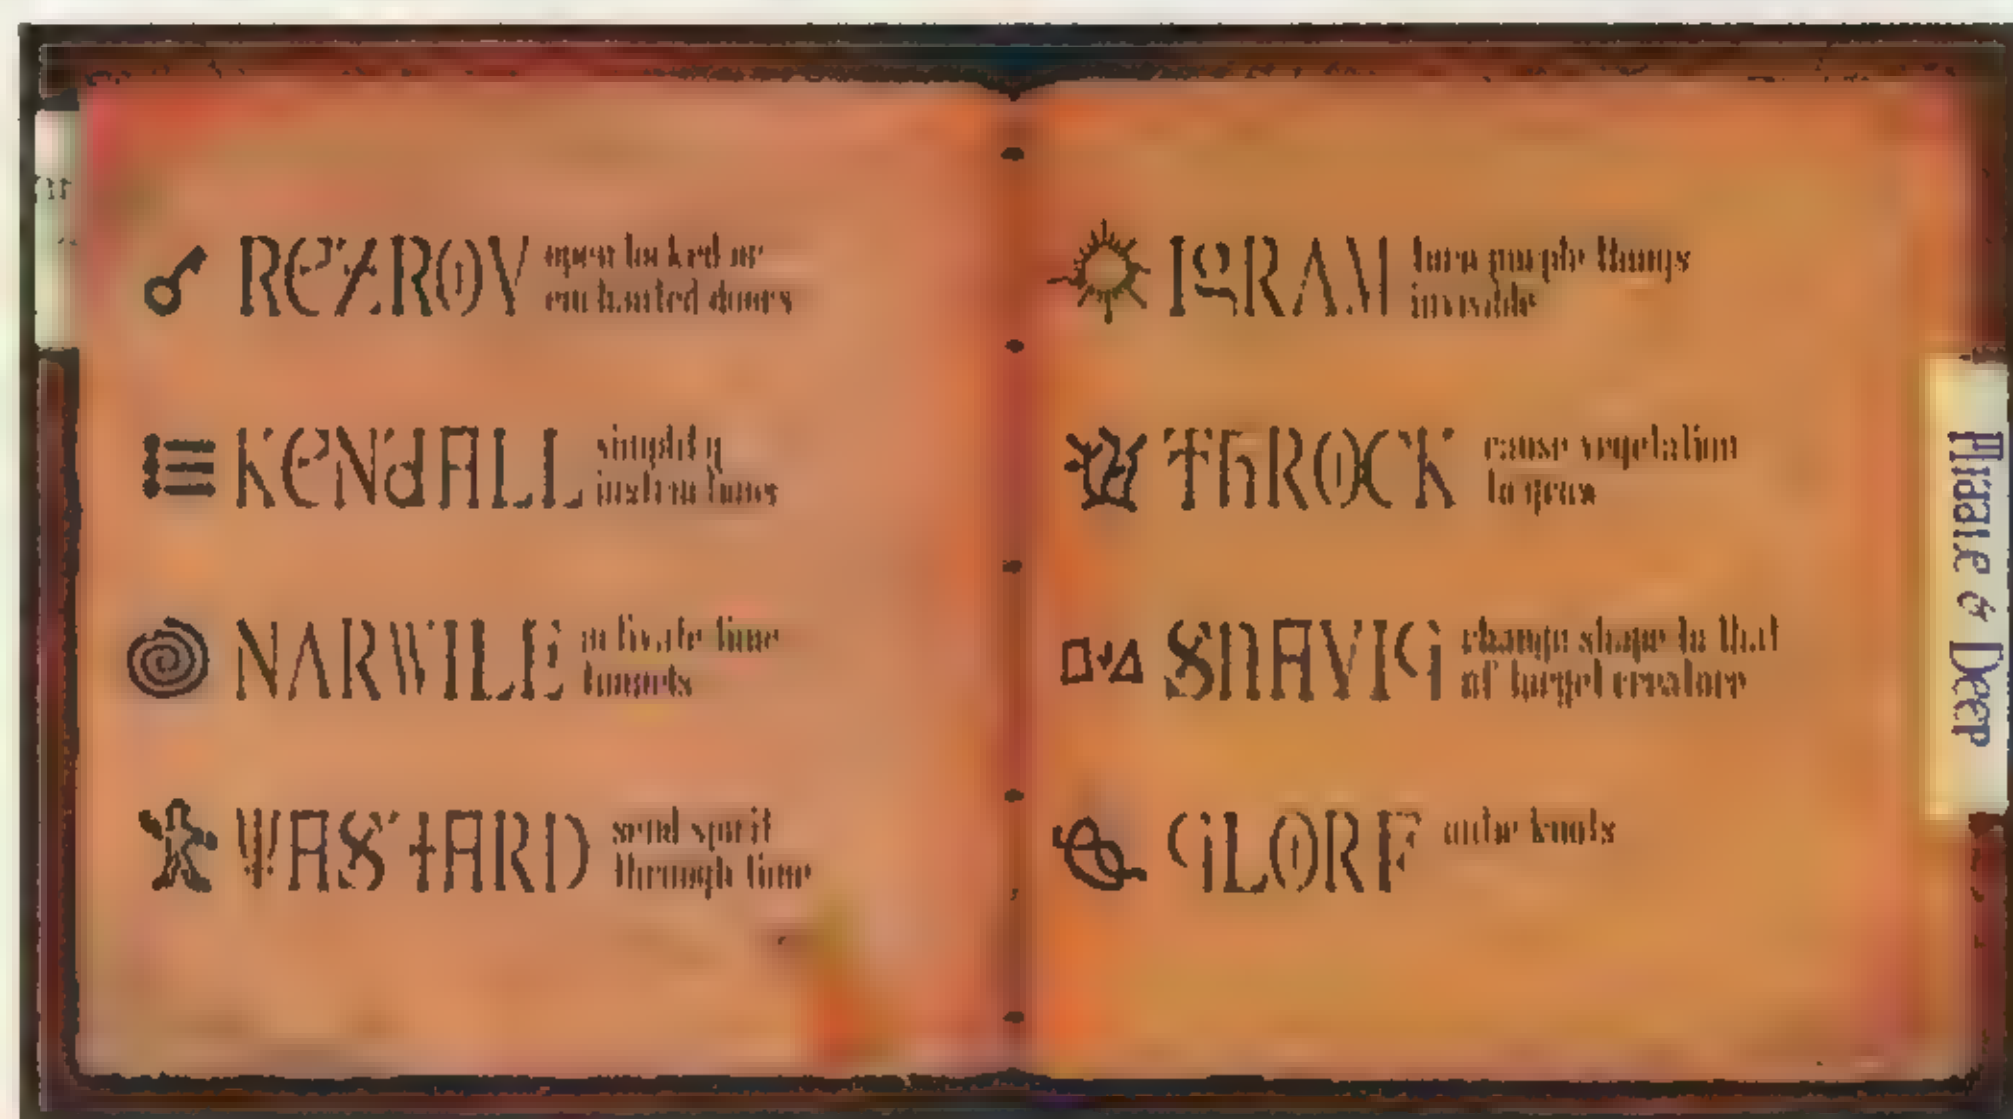 REZROV open locked or
enchanted doors
KENDALL simplify
instructions
NARWILE activate time
tunnels
WASTARD send spirit
through time
IGRAM turn purple things
invisible
THROCK cause vegetation
to grow
SNAVIG change shape to that
of target creature
GLORF untie knots
& Deep